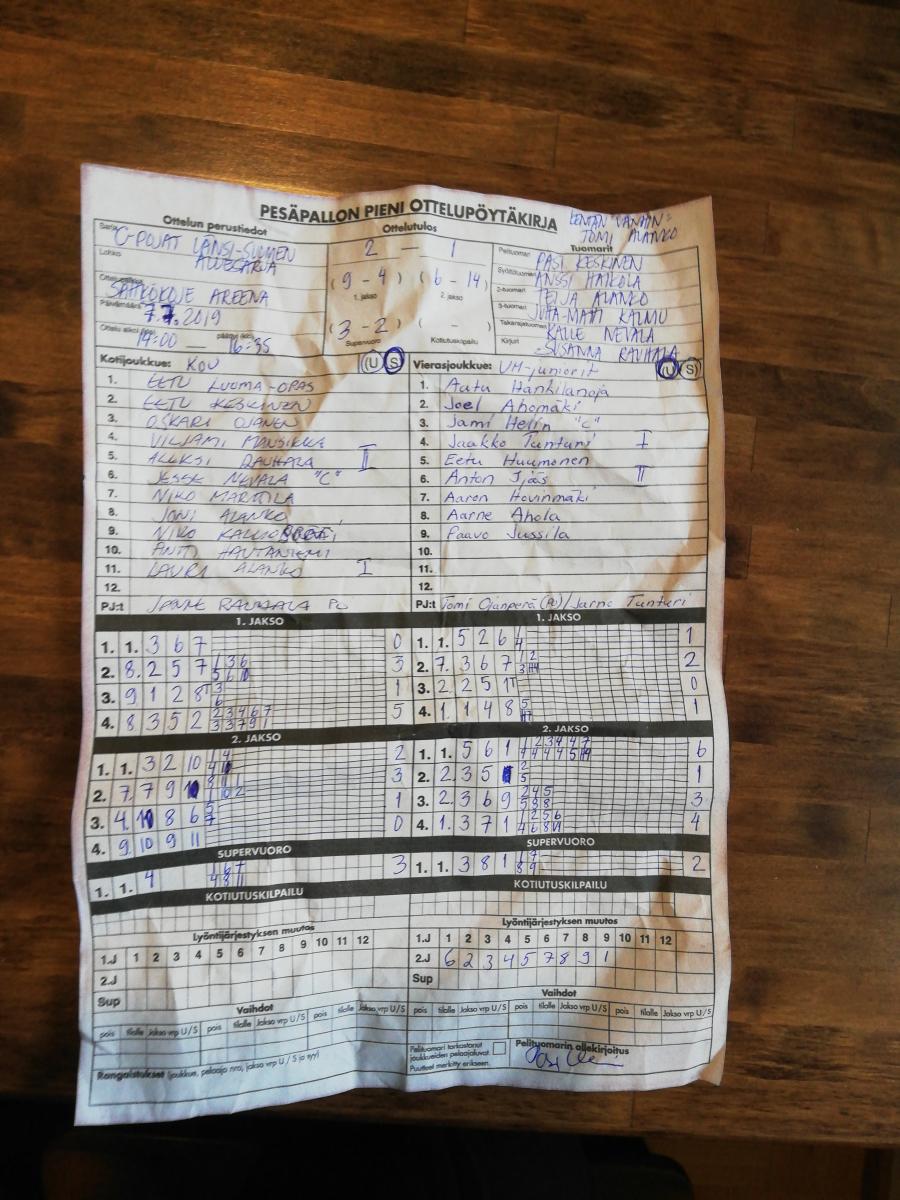 PESÄPALLON PIENI OTTELUPÖYTÄKIRJA
LENTÄN VANHIN:
TOMI ALANKO
Ottelun perustiedot
Ottelutulos
Tuomarit
Sarja C-POJAT LÄNSI-SUOMEN
Lohko ALUESARJA
SÄHKÖKOJE AREENA
Päivämäärä 7.7.2019
Ottelu alkoi (klo) 14:00 päättyi (klo) 16:35
2 — 1
(9 - 4) (6 - 14)
1. jakso 2. jakso
(3 - 2) ( - )
Supervuoro Kotiutuskilpailu
Pelituomari PASI KESKINEN
Syöttötuomari ANSSI HAIKOLA
2-tuomari TEIJA ALANKO
3-tuomari JUHA-MATTI KALMU
Takarajatuomari KALLE NEVALA
Kirjuri SUSANNA RAUHALA
Kotijoukkue: KOU (U S)
1. EETU LUOMA-OPAS
2. EETU KESKINEN
3. OSKARI OJANEN
4. VILJAMI MANSIKKE
5. ALEKSI RAUHALA II
6. JESSE NEVALA "C"
7. NIKO MARTTILA
8. JONI ALANKO
9. NIKO
10. ANTTI HAUTANIEMI
11. LAURI ALANKO I
12.
PJ:t JANNE RAUHALA PJ
Vierasjoukkue: UM-juniorit (U S)
1. Aatu Hankilanoja
2. Joel Ahomäki
3. Jami Helin "C"
4. Jaakko Tunturi I
5. Eetu Huumonen
6. Anton Ijäs II
7. Aaron Hovinmäki
8. Aarne Ahola
9. Paavo Jussila
10.
11.
12.
PJ:t Tomi Ojanperä (PJ) / Jarno Tunturi
1. JAKSO
1. 1. 3 6 7 0
2. 8. 2 5 7 3
3. 9 1 2 8 1
4. 8 3 5 2 5
2. JAKSO
1. 1. 3 2 10 2
2. 7. 7 9 10 3
3. 4. 10 8 6 1
4. 9. 10 9 11 0
SUPERVUORO
1. 1. 4 3
KOTIUTUSKILPAILU
1. JAKSO
1. 1. 5 2 6 1
2. 7. 3 6 7 2
3. 2 2 5 1 0
4. 1. 1 4 8 1
2. JAKSO
1. 1. 5 6 1 6
2. 2. 3 5 1
3. 2. 3 6 9 3
4. 1. 3 7 1 4
SUPERVUORO
1. 1. 3 8 1 2
KOTIUTUSKILPAILU
Lyöntijärjestyksen muutos
1.J 1 2 3 4 5 6 7 8 9 10 11 12
2.J
Sup
Vaihdot
pois tilalle Jakso vrp U/S pois tilalle Jakso vrp U/S pois tilalle Jakso vrp U/S
Rangaistukset (joukkue, pelaaja nro, jakso vrp U / S ja syy)
Lyöntijärjestyksen muutos
1.J 1 2 3 4 5 6 7 8 9 10 11 12
2.J 6 2 3 4 5 7 8 9 1
Sup
Vaihdot
pois tilalle Jakso vrp U/S pois tilalle Jakso vrp U/S pois tilalle Jakso vrp U/S
Pelituomari tarkastanut
joukkueiden pelaajaluvat.
Puutteet merkitty erikseen.
Pelituomarin allekirjoitus